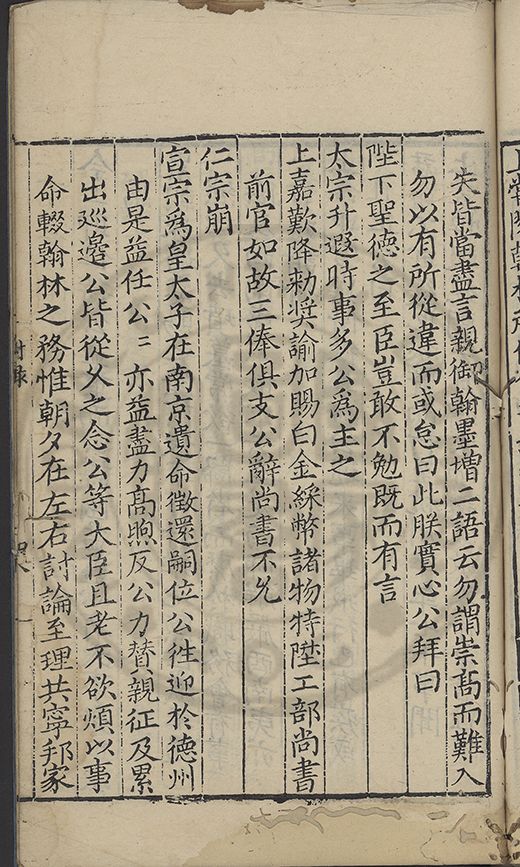 失皆當盡言親御翰墨增二語云勿謂崇高而難入
勿以有所從違而或怠曰此朕實心公拜曰
陛下聖德之至臣豈敢不勉既而有言
太宗升遐時事多公為主之
上嘉歎降勑奬諭加賜白金綵幣諸物特陞工部尚書
前官如故三俸俱支公辭尚書不允
仁宗崩
宣宗爲皇太子在南京遺命徵還嗣位公往迎於德州
由是益任公〻亦益盡力高煦反公力賛親征及累
出廵邉公皆從乆之念公等大臣且老不欲煩以事
命輟翰林之務惟朝夕在左右討論至理共寧邦家